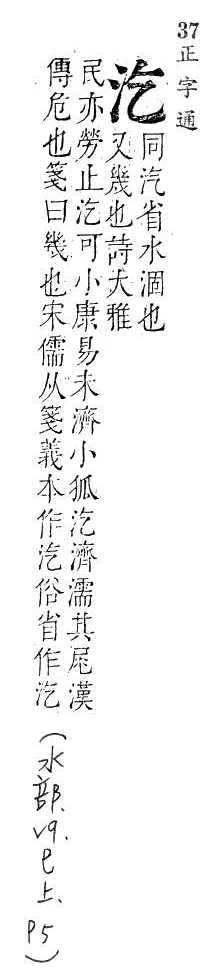 37正字通
汔
同汽省水涸也
又幾也詩大雅
民亦勞止汔可小康易未濟小狐汔濟濡其尾漢
傳危也箋曰幾也宋儒从箋義本作汽俗省作汔
(水部.v9.巳上.P5)